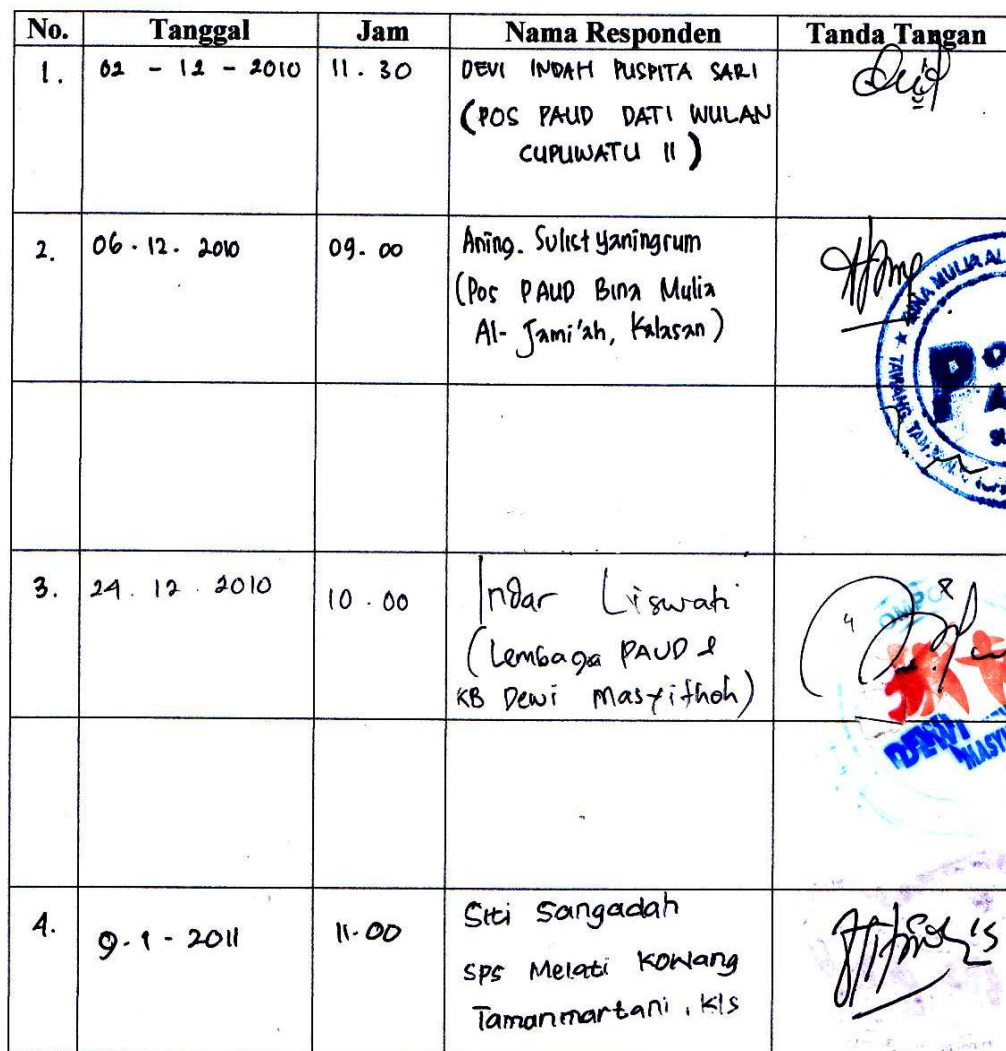 No. Tanggal Jam Nama Responden Tanda Tangan
1. 02 - 12 - 2010 11.30 DEVI INDAH PUSPITA SARI
(POS PAUD DATI WULAN
CUPUWATU II)
2. 06.12.2010 09.00 Aning. Sulistyaningrum
(Pos PAUD Bina Mulia
Al-Jami'ah, Kalasan)
BINA MULIA AL
TAWANG
3. 24.12.2010 10.00 Indar Liswati
(Lembaga PAUD &
KB Dewi Masyithoh)
DEWI
4. 9-1-2011 11.00 Siti Sangadah
SPS Melati Kowang
Tamanmartani, Kls